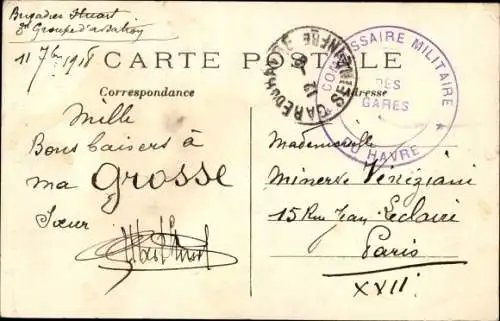 Brigadier Huart
3e Groupe d'aviation
11 7bre 1918
CARTE POSTALE
Correspondance
Adresse
GARE DU HAVRE
SEINE INFRE
12
COMMISSAIRE MILITAIRE
DES
GARES
DU HAVRE
Mille
Bons baisers à
ma Grosse
Sœur
Mademoiselle
Minerve Vénéziani
15 Rue Jean Leclaire
Paris
XVII